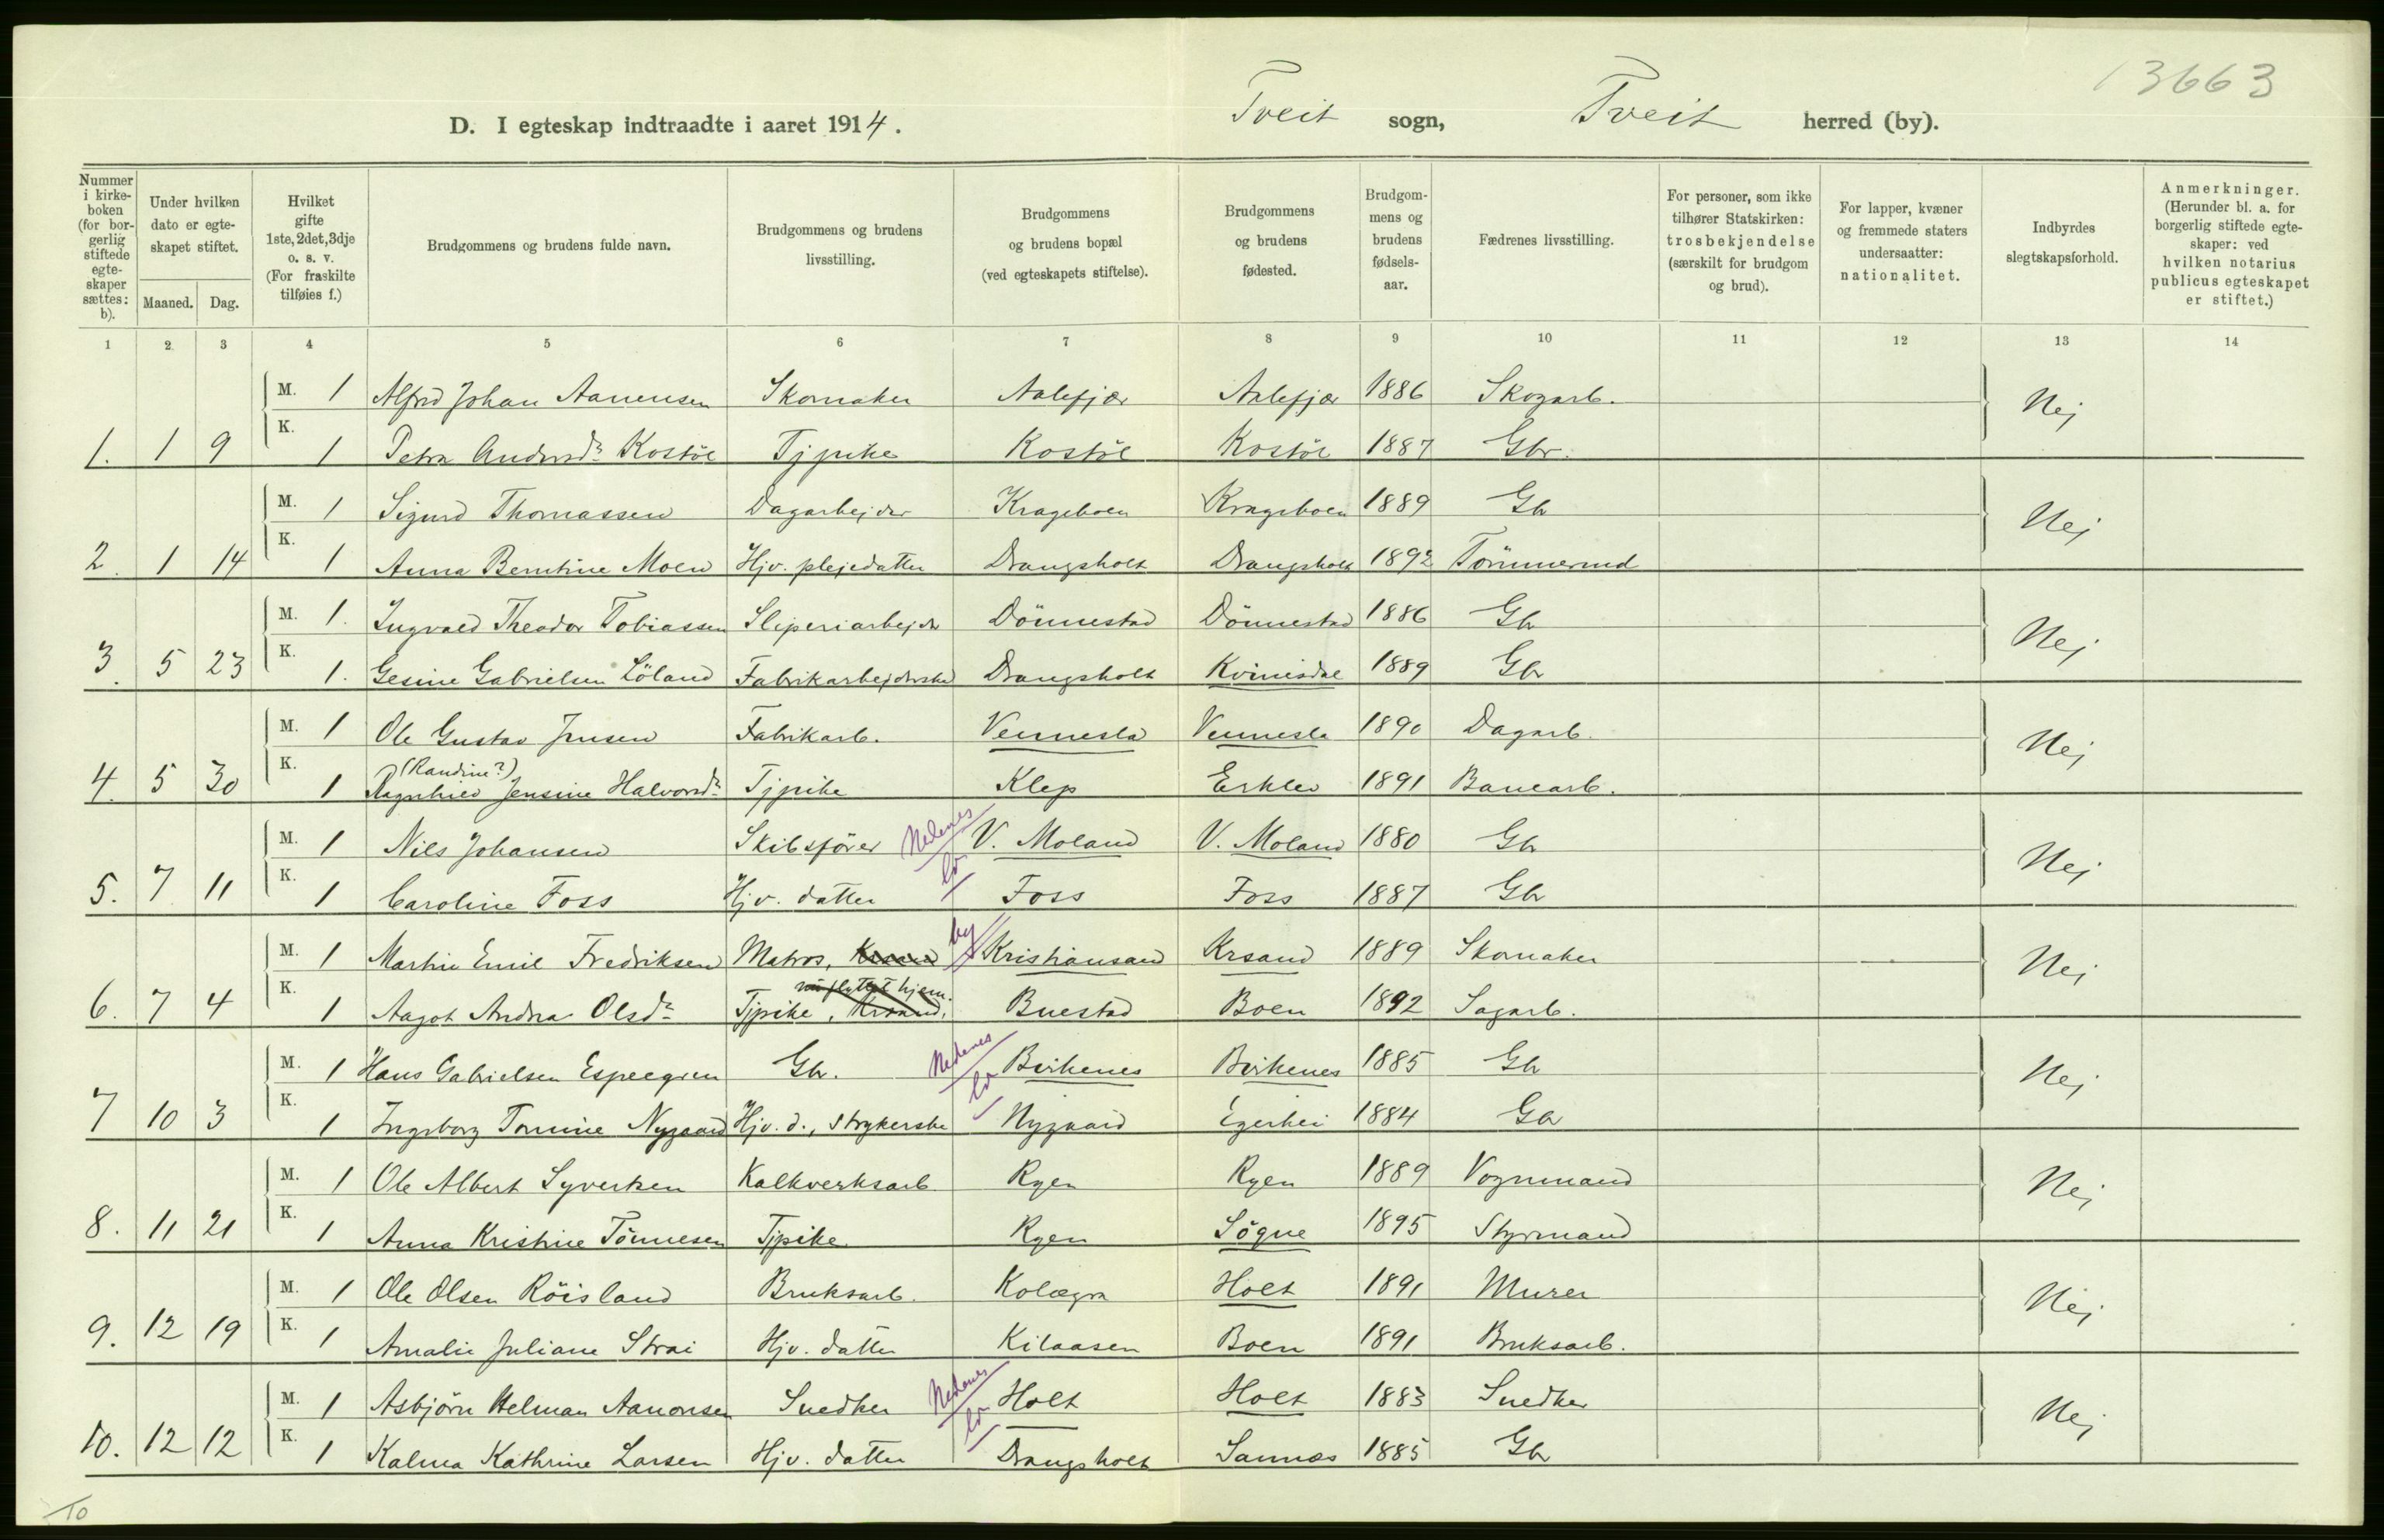 13663
D. I egteskap indtraadte i aaret 1914. Tveit sogn, Tveit herred (by).
Nummer i kirkeboken (for borgerlig stiftede egteskaper sættes: b). Under hvilken dato er egteskapet stiftet. Maaned. Dag. Hvilket gifte 1ste, 2det, 3dje o. s. v. (For fraskilte tilføies f.) Brudgommens og brudens fulde navn. Brudgommens og brudens livsstilling. Brudgommens og brudens bopæl (ved egteskapets stiftelse). Brudgommens og brudens fødested. Brudgommens og brudens fødselsaar. Fædrenes livsstilling. For personer, som ikke tilhører Statskirken: trosbekjendelse (særskilt for brudgom og brud). For lapper, kvæner og fremmede staters undersaatter: nationalitet. Indbyrdes slegtskapsforhold. Anmerkninger. (Herunder bl. a. for borgerlig stiftede egteskaper: ved hvilken notarius publicus egteskapet er stiftet.)
1 2 3 4 5 6 7 8 9 10 11 12 13 14
M. 1 Alfred Johan Aanensen Skomaker Aalefjær Aalefjær 1886 Skogarb. Nej
1. 1 9 K. 1 Petra Andersdr Kostöl Tjpike Kostöl Kostöl 1887 Gbr.
M. 1 Sigurd Thomassen Dagarbejder Krageboen Krageboen 1889 Gb Nej
2. 1 14 K. 1 Anna Berntine Moen Hjv. plejedatter Drangsholt Drangsholt 1892 Tömmermd
M. 1. Ingvald Theodor Tobiassen Sliperiarbejder Dönnestad Dönnestad 1886 Gb Nej
3. 5 23 K. 1. Gesine Gabrielsen Löland Fabrikarbejderske Drangsholt Kvinesdal 1889 Gb
M. 1 Ole Gustav Jensen Fabrikarb. Vennesla Vennesla 1890 Dagarb. Nej
(Randine?)
4. 5 30 K. 1 Ragnhild Jensine Halvorsdr Tjpike Klep Erklev 1891 Banearb.
M. 1 Nils Johansen Skibsfører Nedenes V. Moland V. Moland 1880 Gb Nej
5. 7 11 K. 1 Caroline Foss Hjv. datter Foss Foss 1887 Gb
M. 1 Martin Emil Fredriksen Matros, Krsand by Kristiansand Krsand 1889 Skomaker Nej
nu flyttet hjem.
6. 7 4 K. 1 Aagot Andrea Olsdr Tjpike, Krsand. Buestad Boen 1892 Sagarb.
M. 1 Hans Gabrielsen Espegren Gb. Nedenes Birkenes Birkenes 1885 Gb Nej
7 10 3 K. 1 Ingeborg Tomine Nygaard Hjv. d., strykerske Nygaard Egerhei 1884 Gb
M. 1 Ole Albert Syvertsen Kalkverksarb. Ryen Ryen 1889 Vognmand Nej
8. 11 21 K. 1 Anna Kristine Tönnesen Tjpike Ryen Sögne 1895 Styrmand
M. 1 Ole Olsen Röisland Bruksarb. Kolægra Holt 1891 Murer Nej
9. 12 19 K. 1 Amalie Juliane Strai Hjv. datter Kilaasen Boen 1891 Bruksarb.
M. 1 Asbjörn Helman Aanonsen Snedker Nedenes Holt Holt 1883 Snedker Nej
10. 12 12 K. 1 Kalma Kathrine Larsen Hjv. datter Drangsholt Sannæs 1885 Gb
10